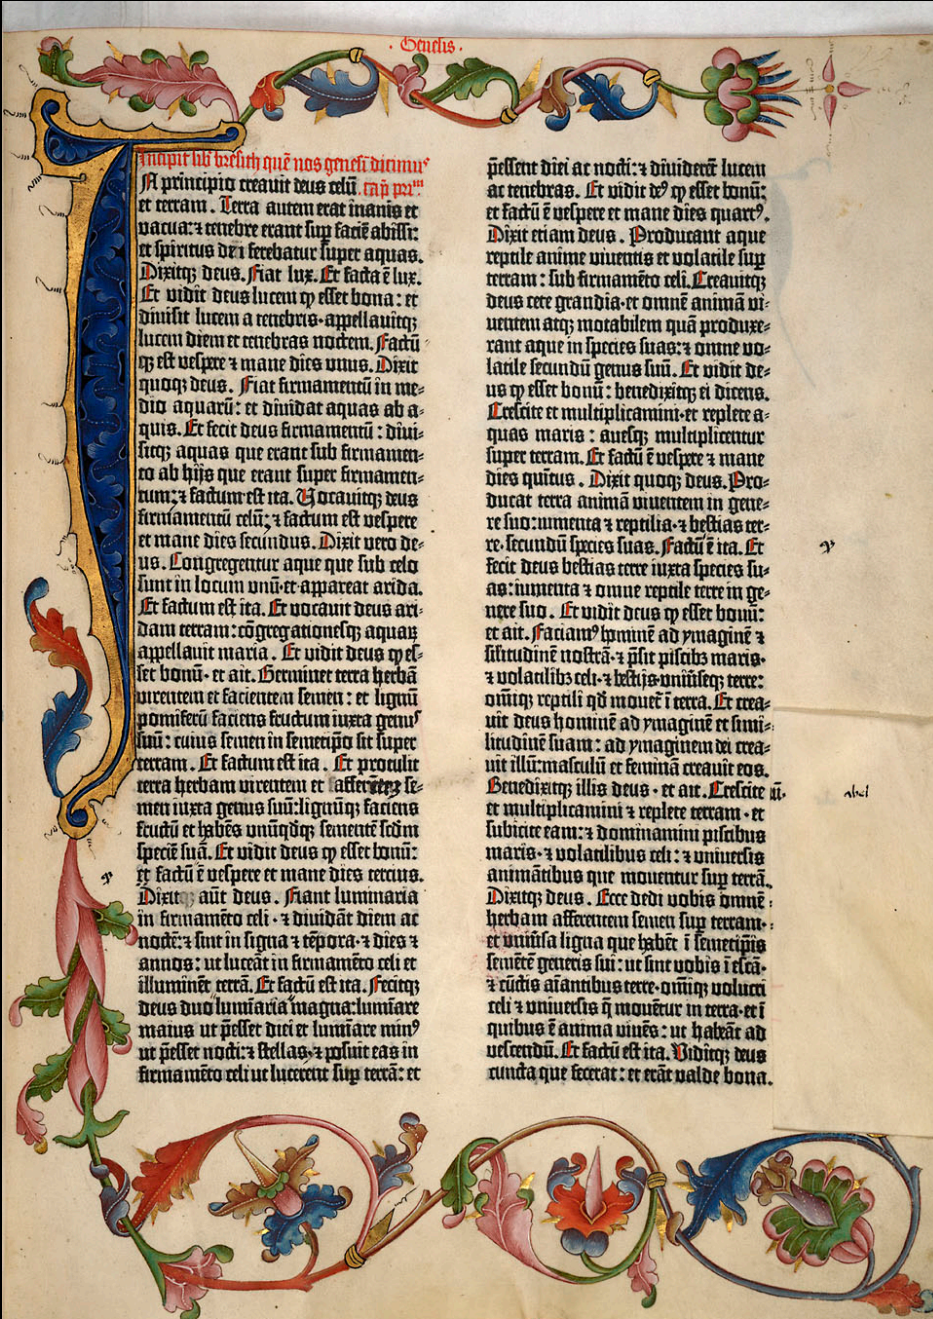 Genesis
Incipit lib̄ bresith quē nos genesī dicimus
In principio creavit deus celū cap̄ primum
et terram. Terra autem erat inanis et
vacua: ⁊ tenebre erant sup̄ faciē abissi:
et spiritus dei ferebatur super aquas.
Dixitqꝫ deus. Fiat lux. Et facta ē lux.
Et vidit deus lucem ꝙ esset bona: et
divisit lucem a tenebris· appellavitqꝫ
lucem diem et tenebras noctem. Factū
qꝫ est vespere ⁊ mane dies unus. Dixit
quoqꝫ deus. Fiat firmamentū in me-
dio aquarū: et dividat aquas ab a-
quis. Et fecit deus firmamentū: divi-
sitqꝫ aquas que erant sub firmamen-
to ab hijs que erant super firmamen-
tum: ⁊ factum est ita. Vocavitqꝫ deus
firmamentū celū: ⁊ factum est vespere
et mane dies secundus. Dixit vero de-
us. Congregentur aque que sub celo
sunt in locum unū et appareat arida.
Et factum est ita. Et vocavit deus ari-
dam terram: cōgregationesqꝫ aquaꝝ
appellavit maria. Et vidit deus ꝙ es-
set bonū· et ait. Germinet terra herbā
virentem et facientem semen: et lignū
pomiferū faciens fructum iuxta genus
suū: cuius semen in semetip̄o sit super
terram. Et factum est ita. Et protulit
terra herbam virentem et afferētē se-
men iuxta genus suū: lignūqꝫ faciens
fructū et habēs unūqdqꝫ sementē scdm
speciē suā. Et vidit deus ꝙ esset bonū:
et factū ē vespere et mane dies tercius.
Dixit aūt deus. Fiant luminaria
in firmamēto celi· ⁊ dividāt diem ac
noctē: ⁊ sint in signa ⁊ tēpora· ⁊ dies ⁊
annos: ut luceāt in firmamēto celi et
illuminēt terrā. Et factū est ita. Fecitqꝫ
deus duo lumīaria magna: lumīare
maius ut p̄esset diei et lumīare minꝰ
ut p̄esset nocti: ⁊ stellas· ⁊ posuit eas in
firmamēto celi ut lucerent sup̄ terrā: et
p̄essent diei ac nocti: ⁊ dividerēt lucem
ac tenebras. Et vidit deꝰ ꝙ esset bonū:
et factū ē vespere et mane dies quartꝰ.
Dixit etiam deus. Producant aque
reptile anime viventis et volatile sup̄
terram: sub firmamēto celi. Creavitqꝫ
deus cete grandia· et omnē animā vi-
ventem atqꝫ motabilem quā produxe-
rant aque in species suas: ⁊ omne vo-
latile secundū genus suū. Et vidit de-
us ꝙ esset bonū: benedixitqꝫ ei dicens.
Crescite et multiplicamini· et replete a-
quas maris: avesqꝫ multiplicentur
super terram. Et factū ē vespere ⁊ mane
dies quītus. Dixit quoqꝫ deus. Pro-
ducat terra animā viventem in gene-
re suo: iumenta ⁊ reptilia· ⁊ bestias ter-
re· secundū species suas. Factū ē ita. Et
fecit deus bestias terre iuxta species su-
as: iumenta ⁊ omne reptile terre in ge-
nere suo. Et vidit deus ꝙ esset bonū:
et ait. Faciamꝰ hominē ad ymaginē ⁊
silitudinē nostrā· ⁊ p̄sit piscibꝫ maris·
⁊ volatilibꝫ celi· ⁊ bestijs univ̄seqꝫ terre:
omīqꝫ reptili qd̄ movet ī terra. Et crea-
vit deus hominē ad ymaginē et simi-
litudinē suam: ad ymaginem dei crea-
vit illū: masculū et feminā creavit eos.
Benedixitqꝫ illis deus· et ait. Crescite
et multiplicamini ⁊ replete terram· et
subicite eam: ⁊ dominamini piscibus
maris· ⁊ volatilibus celi: ⁊ universis
animātibus que moventur sup̄ terrā.
Dixitqꝫ deus. Ecce dedi vobis omnē
herbam afferentem semen sup̄ terram·
et univ̄sa ligna que habēt ī semetip̄is
semētē generis sui: ut sint vobis ī escā·
⁊ cūctis aīantibus terre· omīqꝫ volucri
celi ⁊ universis q̄ movētur in terra· et ī
quibus ē anima vivēs: ut habeāt ad
vescendū. Et factū est ita. Viditqꝫ deus
cuncta que fecerat: et erāt valde bona.